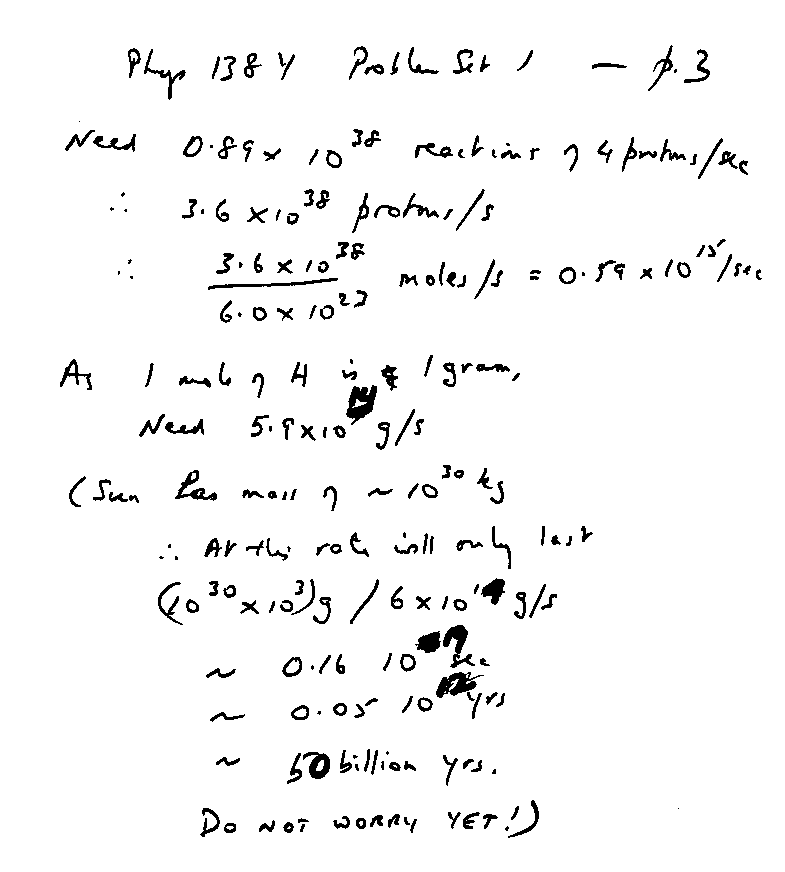 Phys 1384 Problem Set 1 — p.3
Need 0.89 x 10^38 reactions of 4 protons/sec
∴ 3.6 x 10^38 protons/s
∴ 3.6 x 10^38 / 6.0 x 10^23 moles/s = 0.59 x 10^15/sec
As 1 mole of H is 1 gram,
Need 5.9 x 10^14 g/s
(Sun has mass of ~ 10^30 kg
∴ At this rate will only last
(10^30 x 10^3)g / 6 x 10^14 g/s
~ 0.16 10^19 sec
~ 0.05 10^12 yrs
~ 50 billion yrs.
DO NOT WORRY YET!)